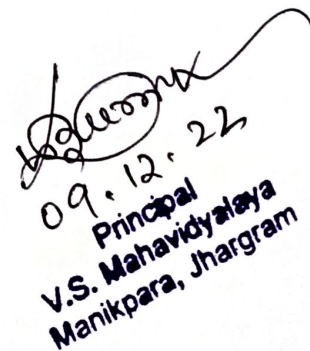 09.12.22
Principal
V.S. Mahavidyalaya
Manikpara, Jhargram